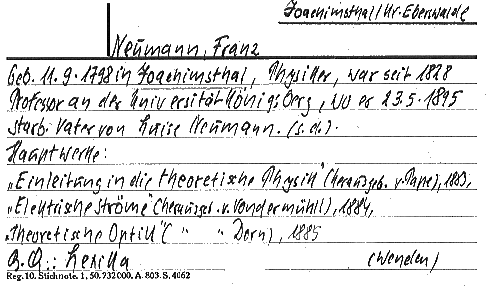 Joachimsthal/Kr. Eberswalde
Neumann, Franz
Geb. 11.9.1798 in Joachimsthal, Physiker, war seit 1828
Professor an der Universität Königsberg, wo er 23.5.1895
starb. Vater von Luise Neumann. (s.d.).
Hauptwerke:
„Einleitung in die theoretische Physik" (herausgeb. v. Pape), 1883,
„Elektrische Ströme" (herausgeb. v. Vondermühll), 1884,
„Theoretische Optik" ( " " Dorn), 1885
a.Q.: Lexika
(Wenden)
Reg. 10. Stichnote. 1, 50. 732 000. A. 803. S. 4062